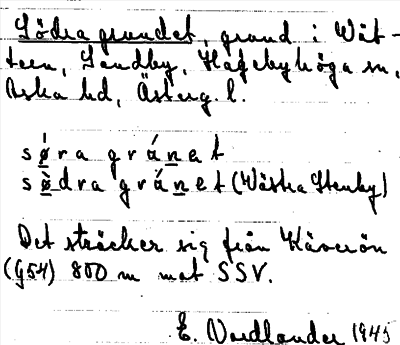 Södra grundet, grund i Vät-
tern, Sandby, Hagebyhöga sn,
Aska hd, Österg. l.
sø̀ra gránet
sø̀dra gránet (Västra Stenby)
Det sträcker sig från Kåverön
(G54) 800 m mot SSV.
E. Nordlander 1945